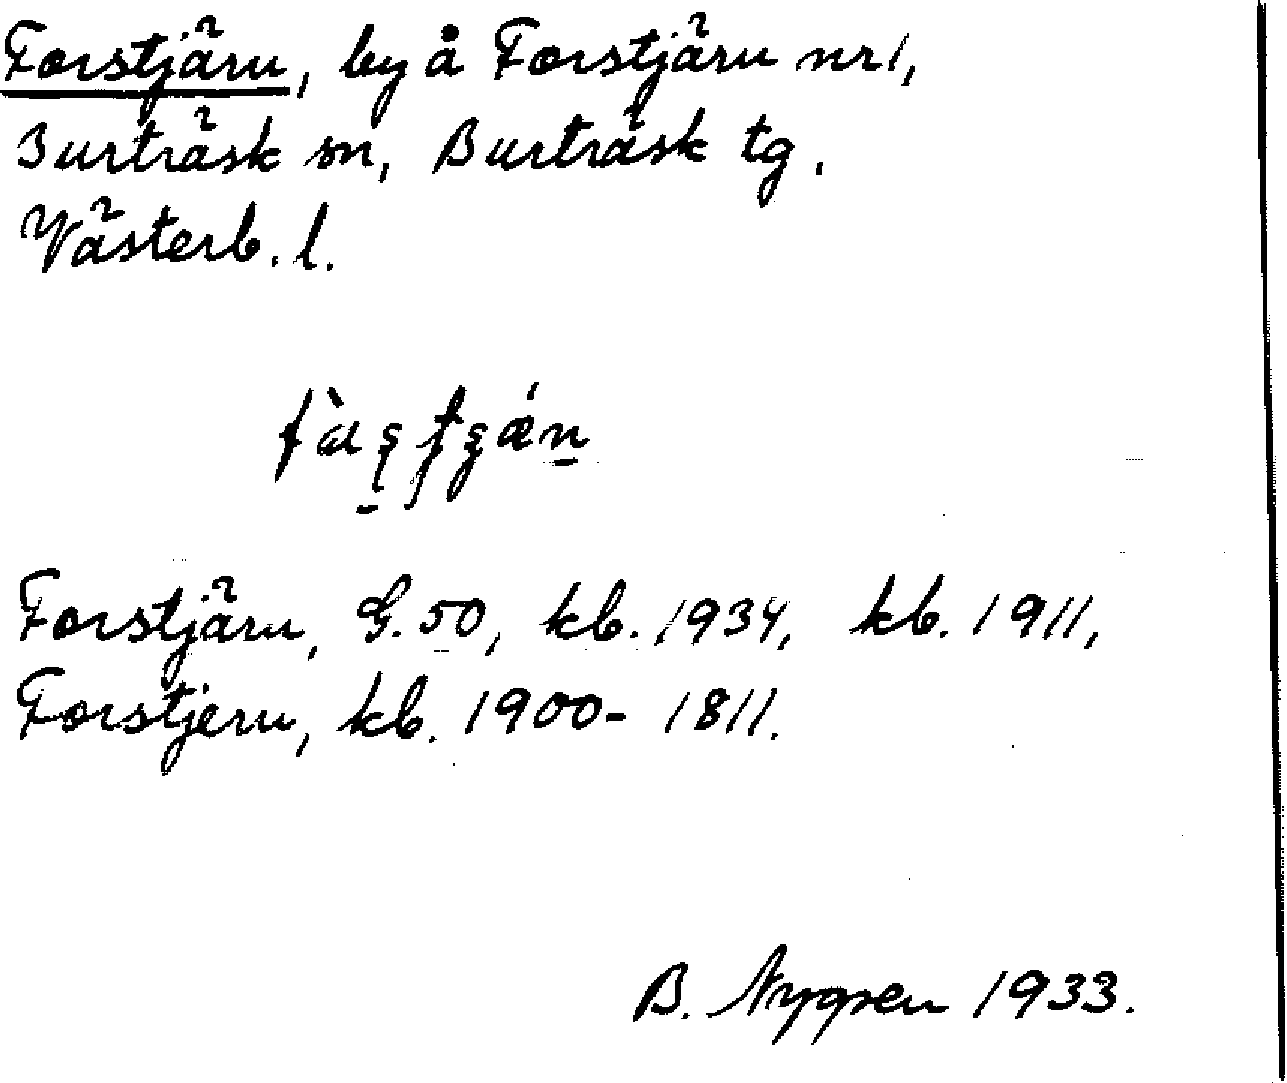 Forstjärn, by å Forstjärn nr 1,
Burträsk sn, Burträsk tg.
Västerb. l.
Forstjärn, G. 50, kb. 1934, kb. 1911,
Forstjern, kb. 1900- 1811.
B. Nygren 1933.